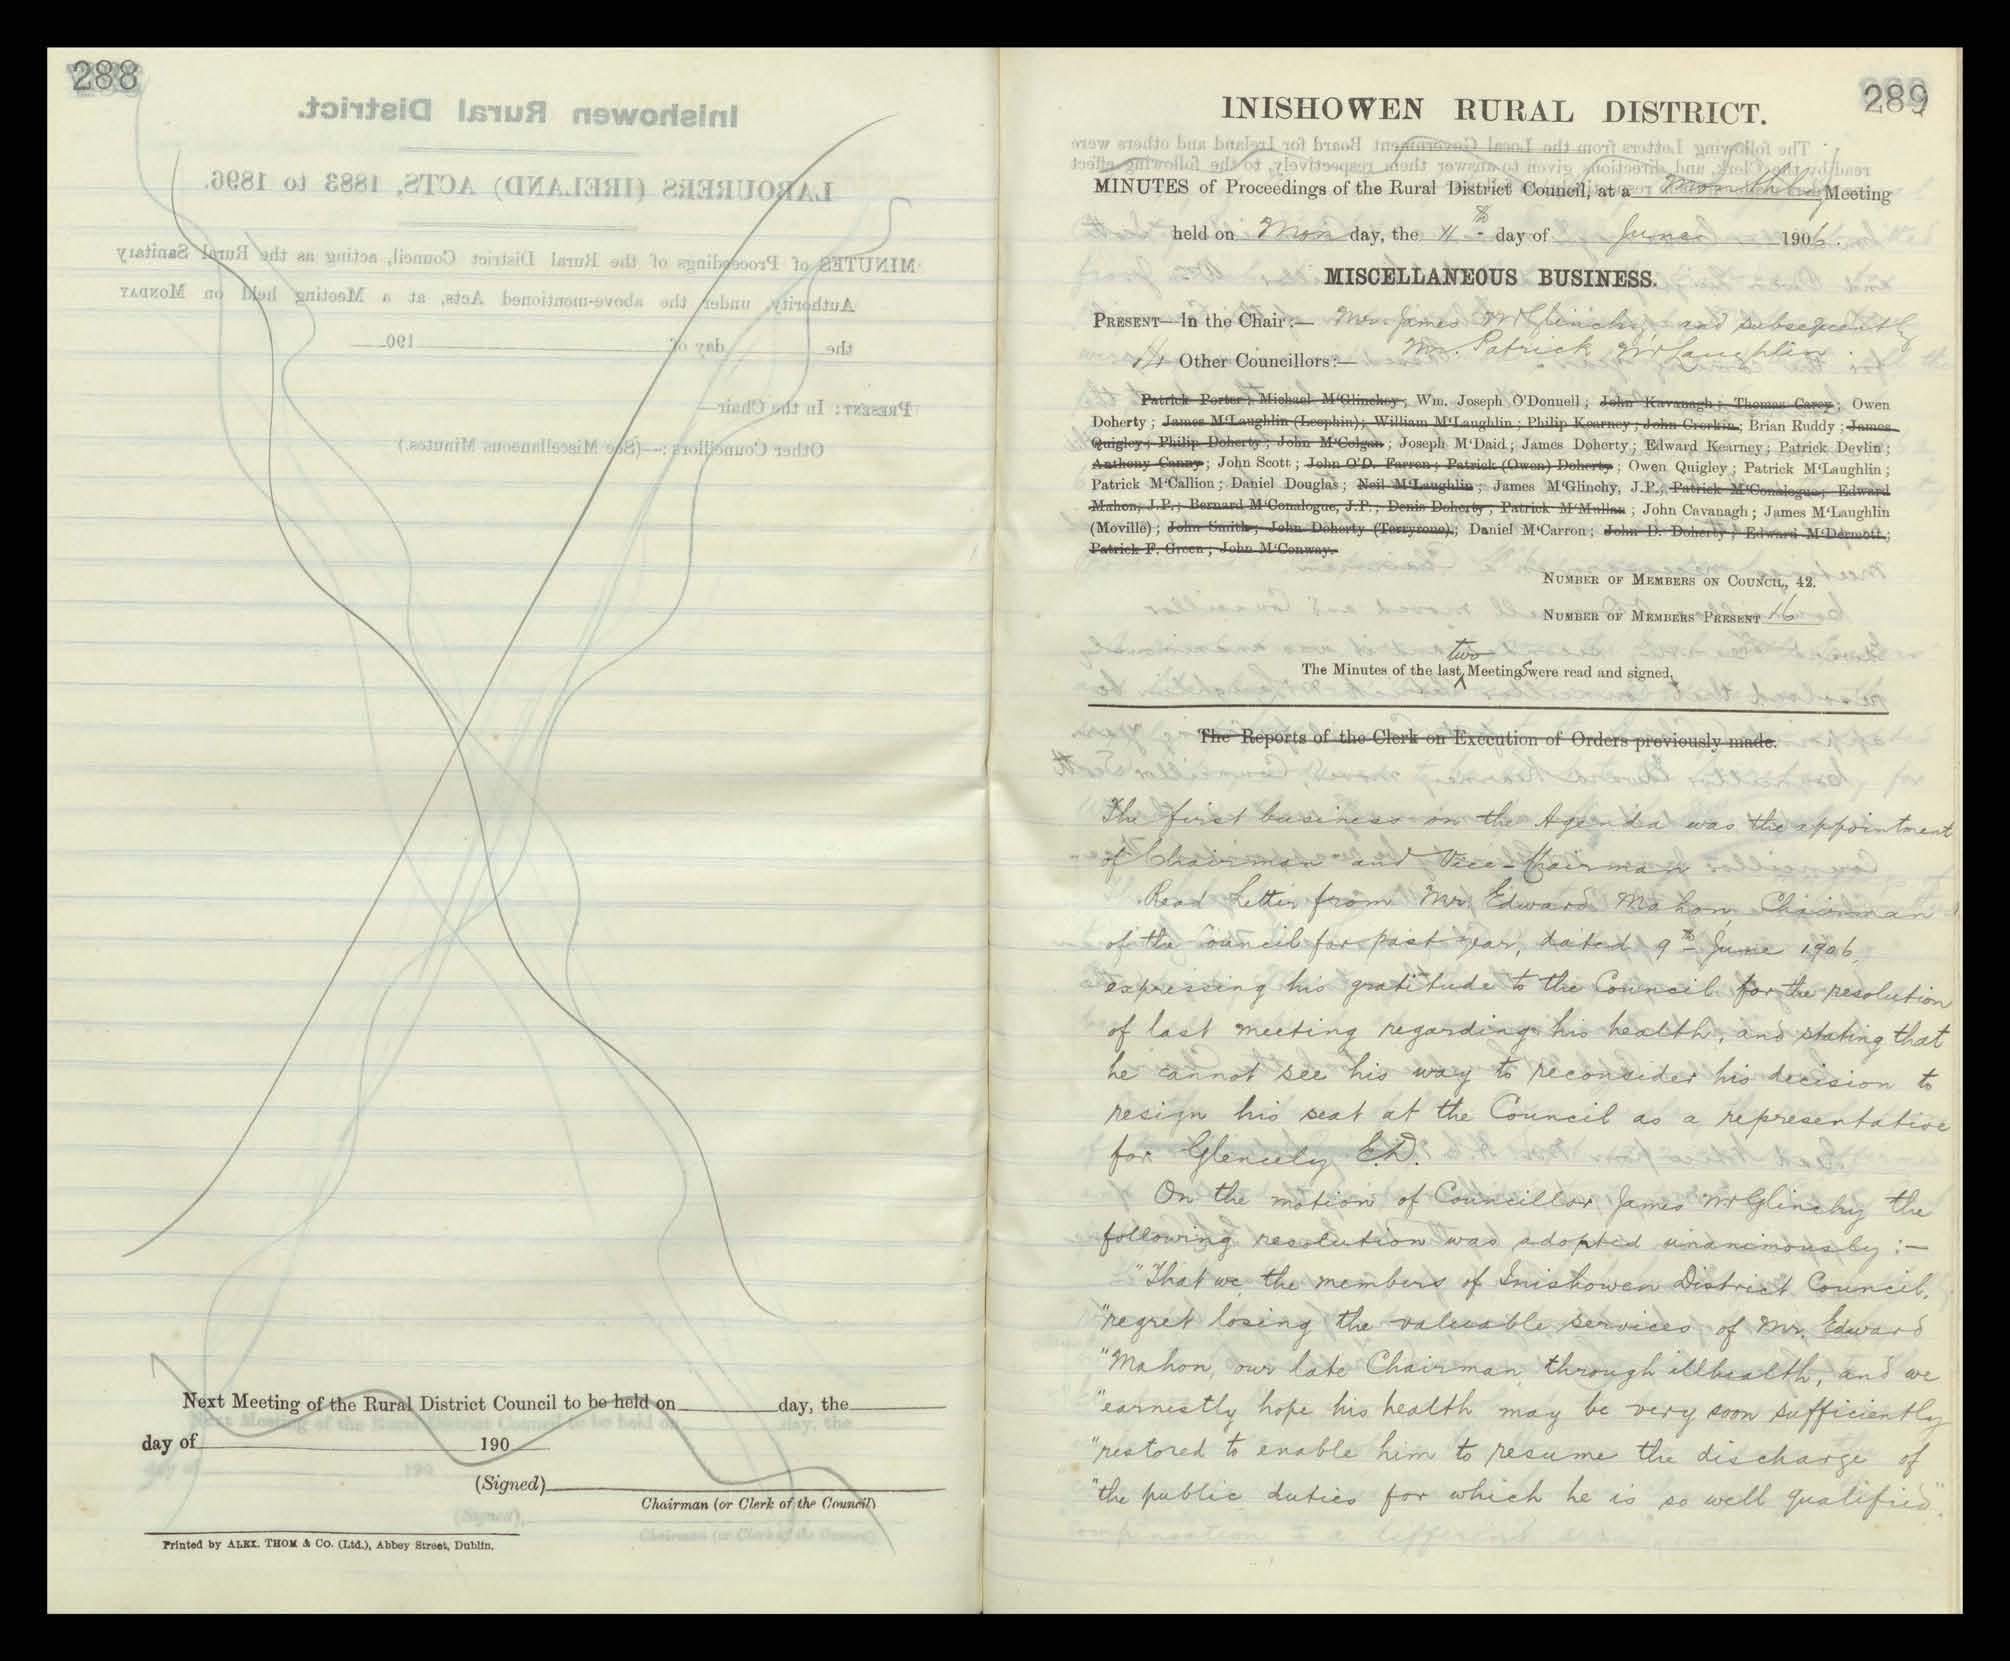 288
Next Meeting of the Rural District Council to be held on            day, the
day of            190
(Signed)
Chairman (or Clerk of the Council)
Printed by ALEX. THOM & Co. (Ltd.), Abbey Street, Dublin.
289
INISHOWEN RURAL DISTRICT.
MINUTES of Proceedings of the Rural District Council, at a Monthly Meeting
held on Monday, the 11th day of June 1906.
MISCELLANEOUS BUSINESS.
PRESENT—In the Chair:— Mr. James McGlinchy, and subsequently
Mr. Patrick McLaughlin.
14 Other Councillors:—
Patrick Porter; Michael M'Glinchey; Wm. Joseph O'Donnell; John Kavanagh; Thomas Carey; Owen
Doherty; James M'Laughlin (Leophin); William M'Laughlin; Philip Kearney; John Crerkin; Brian Ruddy; James
Quigley; Philip Doherty; John M'Colgan; Joseph M'Daid; James Doherty; Edward Kearney; Patrick Devlin;
Anthony Canny; John Scott; John O'D. Farren; Patrick (Owen) Doherty; Owen Quigley; Patrick M'Laughlin;
Patrick M'Callion; Daniel Douglas; Neil M'Laughlin; James M'Glinchy, J.P.; Patrick M'Conalogue; Edward
Mahon, J.P.; Bernard M'Conalogue, J.P.; Denis Doherty; Patrick M'Mallan; John Cavanagh; James M'Laughlin
(Moville); John Smith; John Doherty (Terryrone); Daniel M'Carron; John D. Doherty; Edward M'Dermott;
Patrick F. Green; John M'Conway.
NUMBER OF MEMBERS ON COUNCIL, 42.
NUMBER OF MEMBERS PRESENT 16
The Minutes of the last two Meetings were read and signed.
The Reports of the Clerk on Execution of Orders previously made.
The first business on the Agenda was the appointment
of Chairman and Vice-Chairman
Read Letter from Mr. Edward Mahon, Chairman
of the Council for past year, dated 9th June 1906,
expressing his gratitude to the Council for the resolution
of last meeting regarding his health, and stating that
he cannot see his way to reconsider his decision to
resign his seat at the Council as a representative
for Gleneely E.D.
On the motion of Councillor James McGlinchy the
following resolution was adopted unanimously:—
"That we the members of Inishowen District Council,
"regret losing the valuable services of Mr. Edward
"Mahon, our late Chairman, through illhealth, and we
"earnestly hope his health may be very soon sufficiently
"restored to enable him to resume the discharge of
"the public duties for which he is so well qualified".